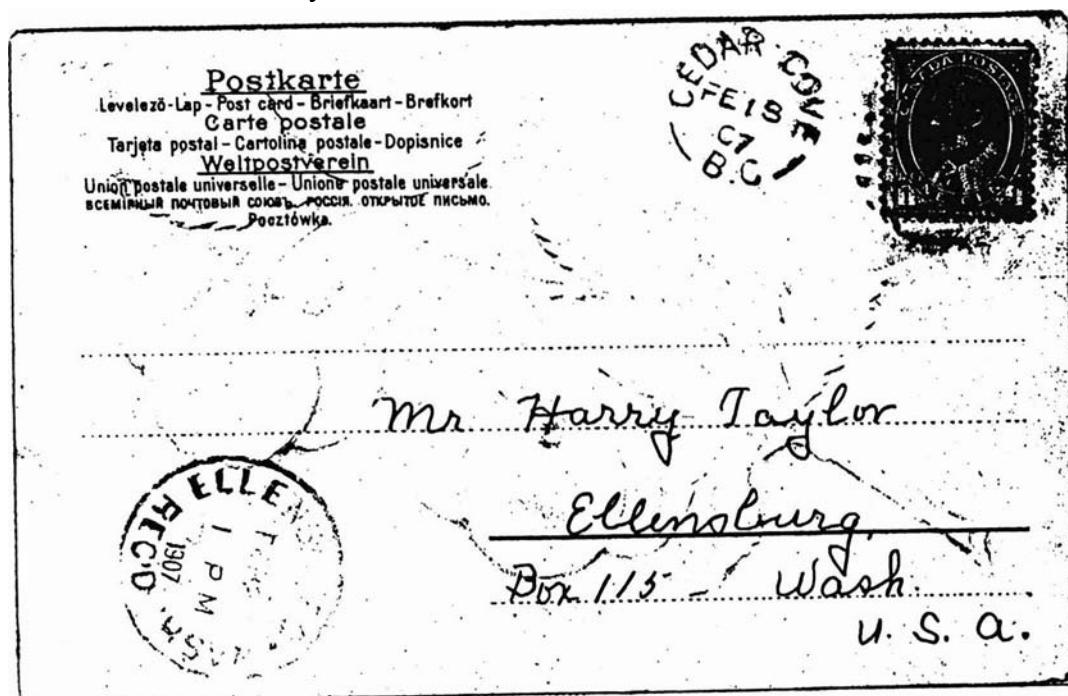 Postkarte
Levelező-Lap - Post card - Briefkaart - Brefkort
Carte postale
Tarjeta postal - Cartolina postale - Dopisnice
Weltpostverein
Union postale universelle - Unione postale universale.
ВСЕМІРНЫЙ ПОЧТОВЫЙ СОЮЗЪ. РОССІЯ. ОТКРЫТОЕ ПИСЬМО.
Pocztówka.
CEDAR COVE
FE 18
07
B.C
POSTAGE
Mr Harry Taylor
Ellensburg,
Box 115 - Wash.
U. S. A.
ELLENS WASH.
1 PM
1907
REC'D